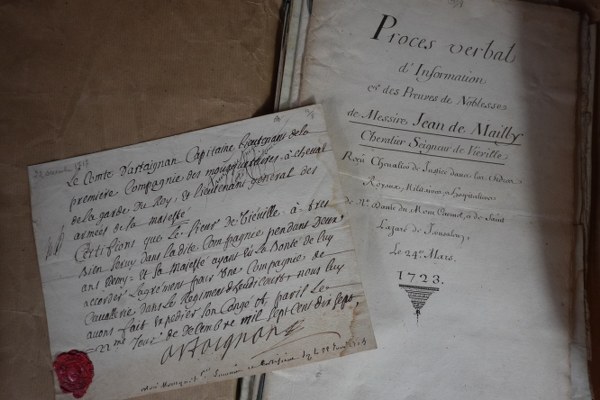 22 décembre 1717
Le Comte Dartaignan Capitaine Lieutenant de la
première Compagnie des mousquetaires à cheval
de la garde du Roy, et Lieutenant général des
armées de sa majesté
Certifions que Le sieur de Viéville à tres
Bien servy dans ladite Compagnie pendant Deux
ans Demy et sa majesté ayant eü la Bonté de luy
accorder Lagrément dune Compagnie de
Cavalerie dans Le Regiment nous luy
avons fait expedier son Congé fait à paris Le
22me Jour de decembre mil sept Cent dix sept
artaignan
Proces verbal
d'Information
et des Preuves de Noblesse
de Messire Jean de Mailly
Chevalier Seigneur de Vieville
Reçu Chevalier de Justice dans les Ordres
Royaux, Militaires et hospitaliers
de N. Dame du Mont Carmel, et de Saint
Lazare de Jerusalem,
Le 24e Mars.
1723.